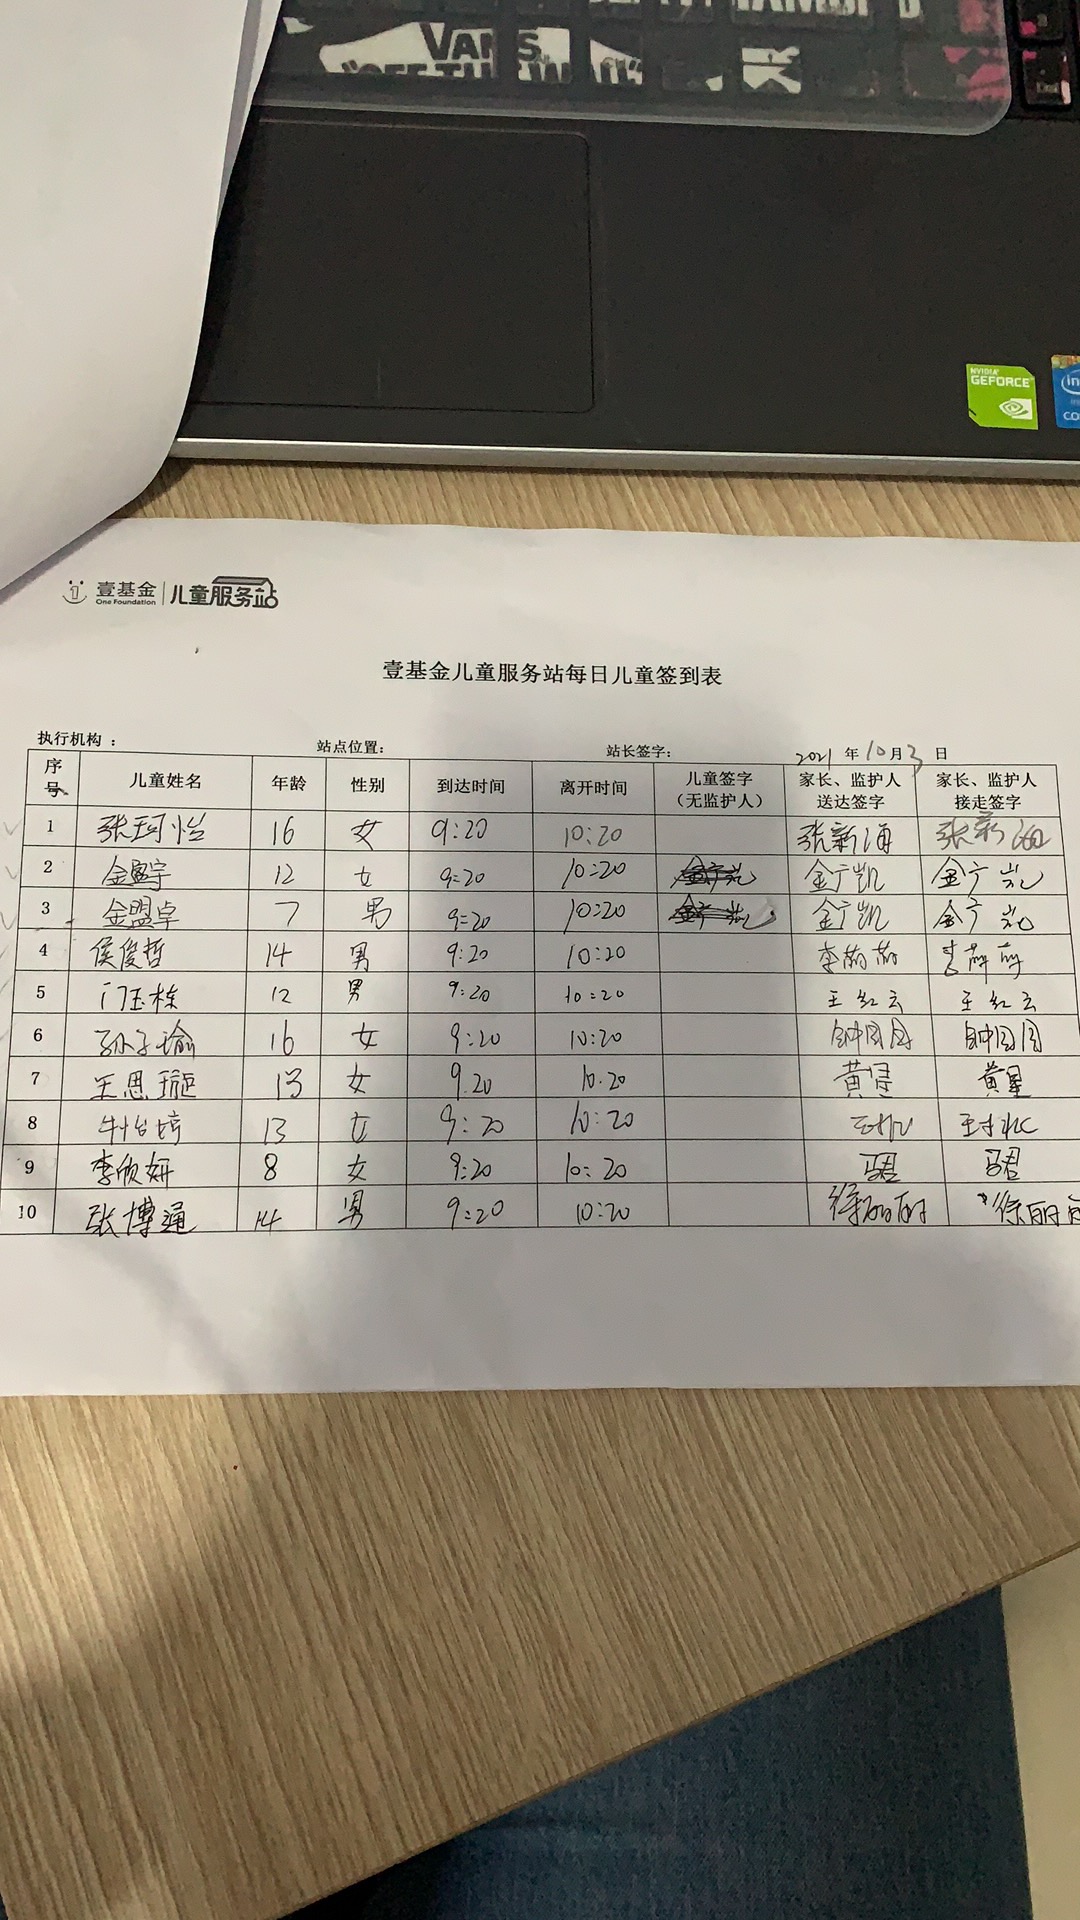 VANS
"OFF THE WALL"
NVIDIA
GEFORCE
壹基金 儿童服务站
One Foundation
壹基金儿童服务站每日儿童签到表
执行机构： 站点位置： 站长签字： 2021 年 10 月 3 日
序号 儿童姓名 年龄 性别 到达时间 离开时间 儿童签字（无监护人） 家长、监护人送达签字 家长、监护人接走签字
1 张珂怡 16 女 9:20 10:20 张新海 张新海
2 金盟宇 12 女 9:20 10:20 金广凯 金广凯 金广凯
3 金盟卓 7 男 9:20 10:20 金广凯 金广凯 金广凯
4 侯俊哲 14 男 9:20 10:20 李萌萌
5 门玉栋 12 男 9:20 10:20 王红云 王红云
6 孙子瑜 16 女 9:20 10:20 钟园园 钟园园
7 王思璇 13 女 9.20 10.20 黄星 黄星
8 牛怡 13 女 9:20 10:20
9 李欣妍 8 女 9:20 10:20 冯君 冯君
10 张博通 14 男 9:20 10:20 徐丽丽 徐丽